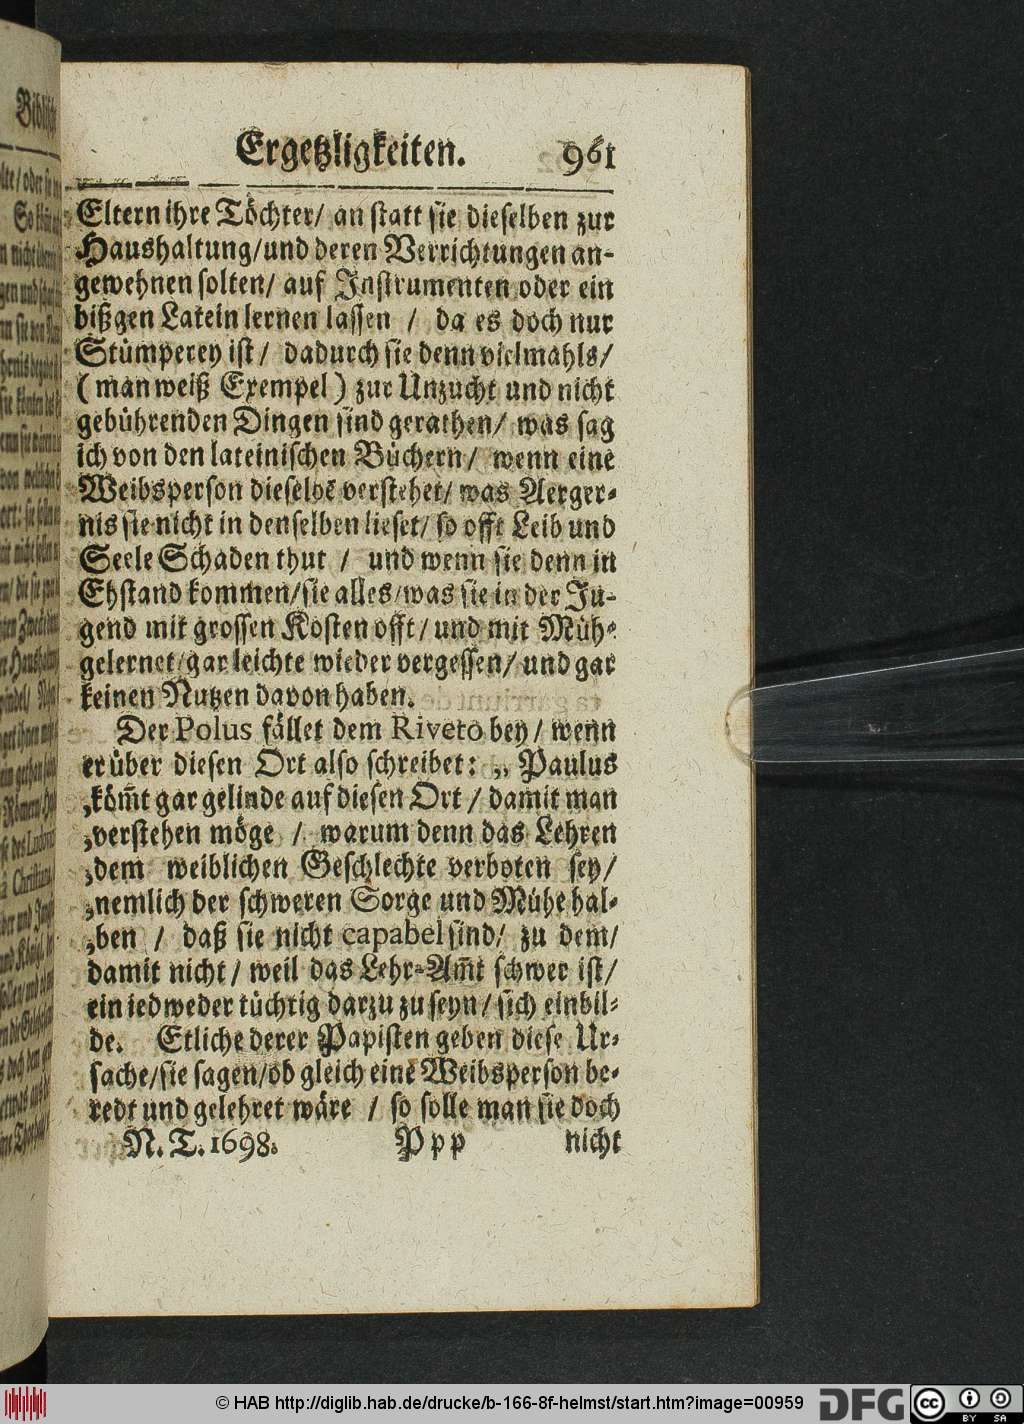 Ergetzligkeiten. 961
Eltern ihre Töchter/ an statt sie dieselben zur
Haushaltung/und deren Verrichtungen an-
gewehnen solten/ auf Instrumenten oder ein
bißgen Latein lernen lassen / da es doch nur
Stümperey ist/ dadurch sie denn vielmahls/
(man weiß Exempel) zur Unzucht und nicht
gebührenden Dingen sind gerathen/ was sag
ich von den lateinischen Büchern/ wenn eine
Weibsperson dieselbe verstehet/ was Aerger-
nis sie nicht in denselben lieset/ so offt Leib und
Seele Schaden thut / und wenn sie denn in
Ehstand kommen/sie alles/was sie in der Ju-
gend mit grossen Kosten offt/ und mit Müh-
gelernet/gar leichte wieder vergessen/ und gar
keinen Nutzen davon haben.
Der Polus fället dem Riveto bey/ wenn
er über diesen Ort also schreibet: „ Paulus
„köm̃t gar gelinde auf diesen Ort / damit man
„verstehen möge / warum denn das Lehren
„dem weiblichen Geschlechte verboten sey/
„nemlich der schweren Sorge und Mühe hal-
„ben / daß sie nicht capabel sind/ zu dem/
damit nicht/ weil das Lehr-Am̃t schwer ist/
ein iedweder tüchtig darzu zu seyn/ sich einbil-
de. Etliche derer Papisten geben diese Ur-
sache/sie sagen/ob gleich eine Weibsperson be-
redt und gelehret wäre / so solle man sie doch
N. T. 1698. Ppp nicht
© HAB http://diglib.hab.de/drucke/b-166-8f-helmst/start.htm?image=00959
DFG
cc BY SA